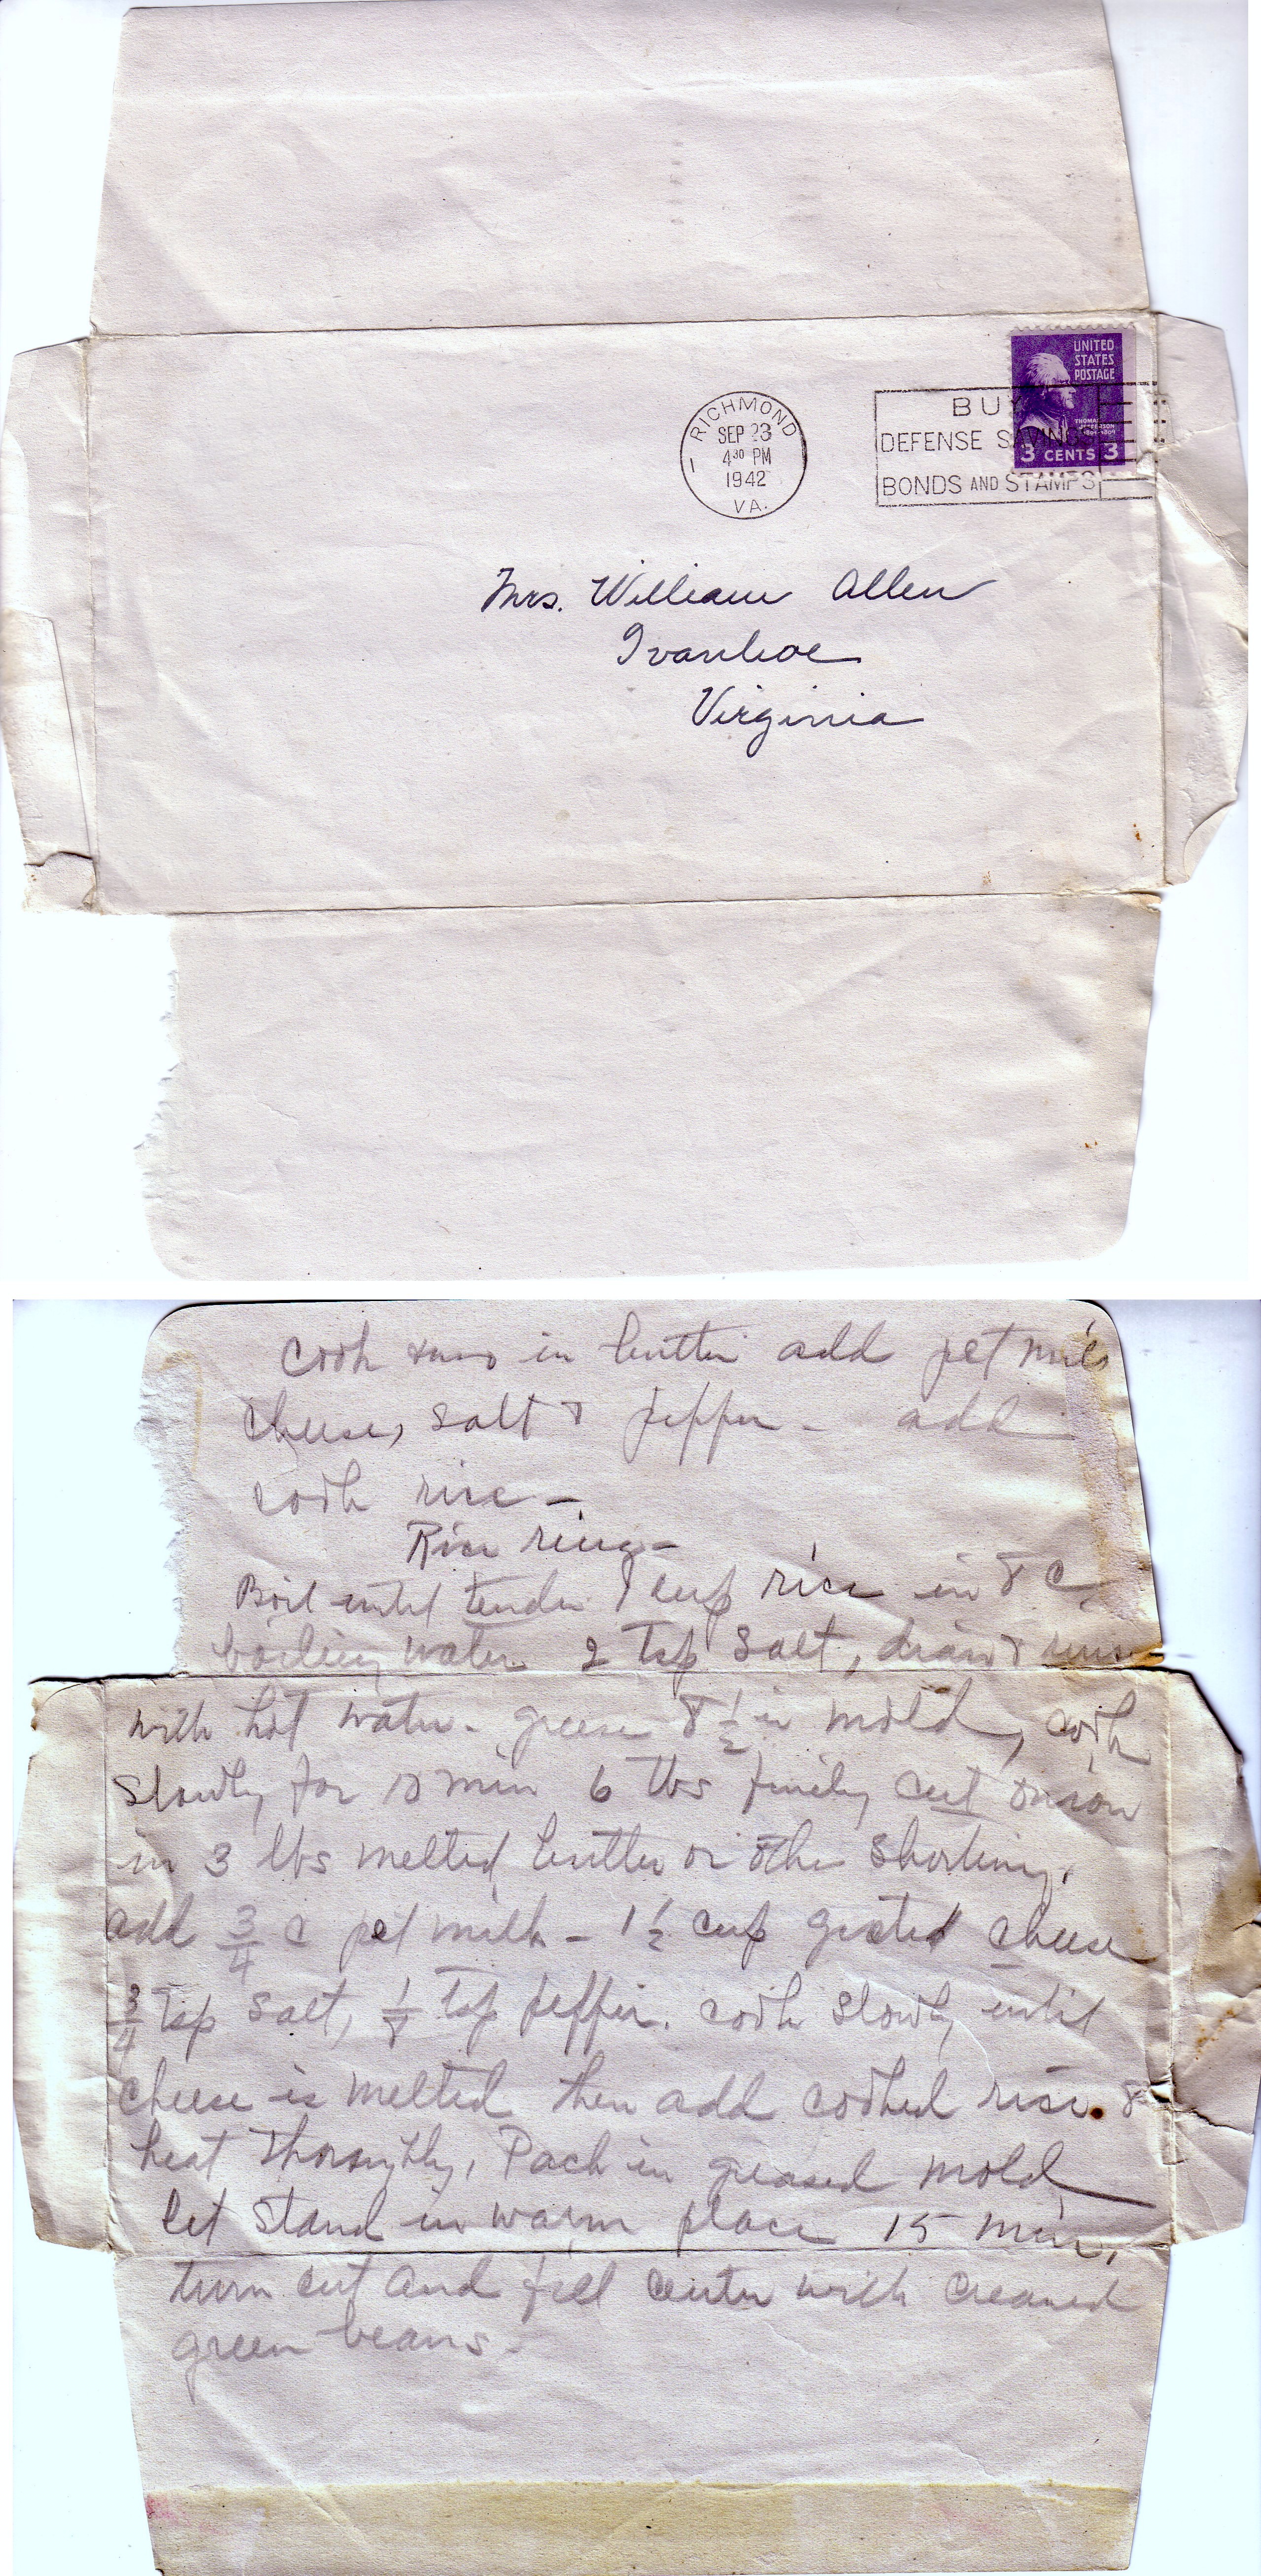 UNITED
STATES
POSTAGE
THOMAS
JEFFERSON
3 CENTS 3
RICHMOND
SEP 23
4 30 PM
1942
VA.
1
BUY
DEFENSE SAVINGS
BONDS AND STAMPS
Mrs. William Allen
Ivanhoe
Virginia
cook in butter add pet milk
cheese, salt & pepper - add
cook rice -
Rice ring -
Boil until tender 1 cup rice in 8 C
boiling water 2 Tsp salt, drain & rinse
with hot water - grease 8 1/2 in mold, cook
slowly for 10 min 6 tbs finely cut onion
in 3 lbs melted butter or other shortning.
add 3/4 c pet milk - 1 1/2 cup grated cheese
3/4 Tsp salt, 1/8 Tsp pepper. cook slowly until
cheese is melted then add cooked rice &
heat thoroughly, Pack in greased mold
let stand in warm place 15 min,
turn out and fill center with creamed
green beans -